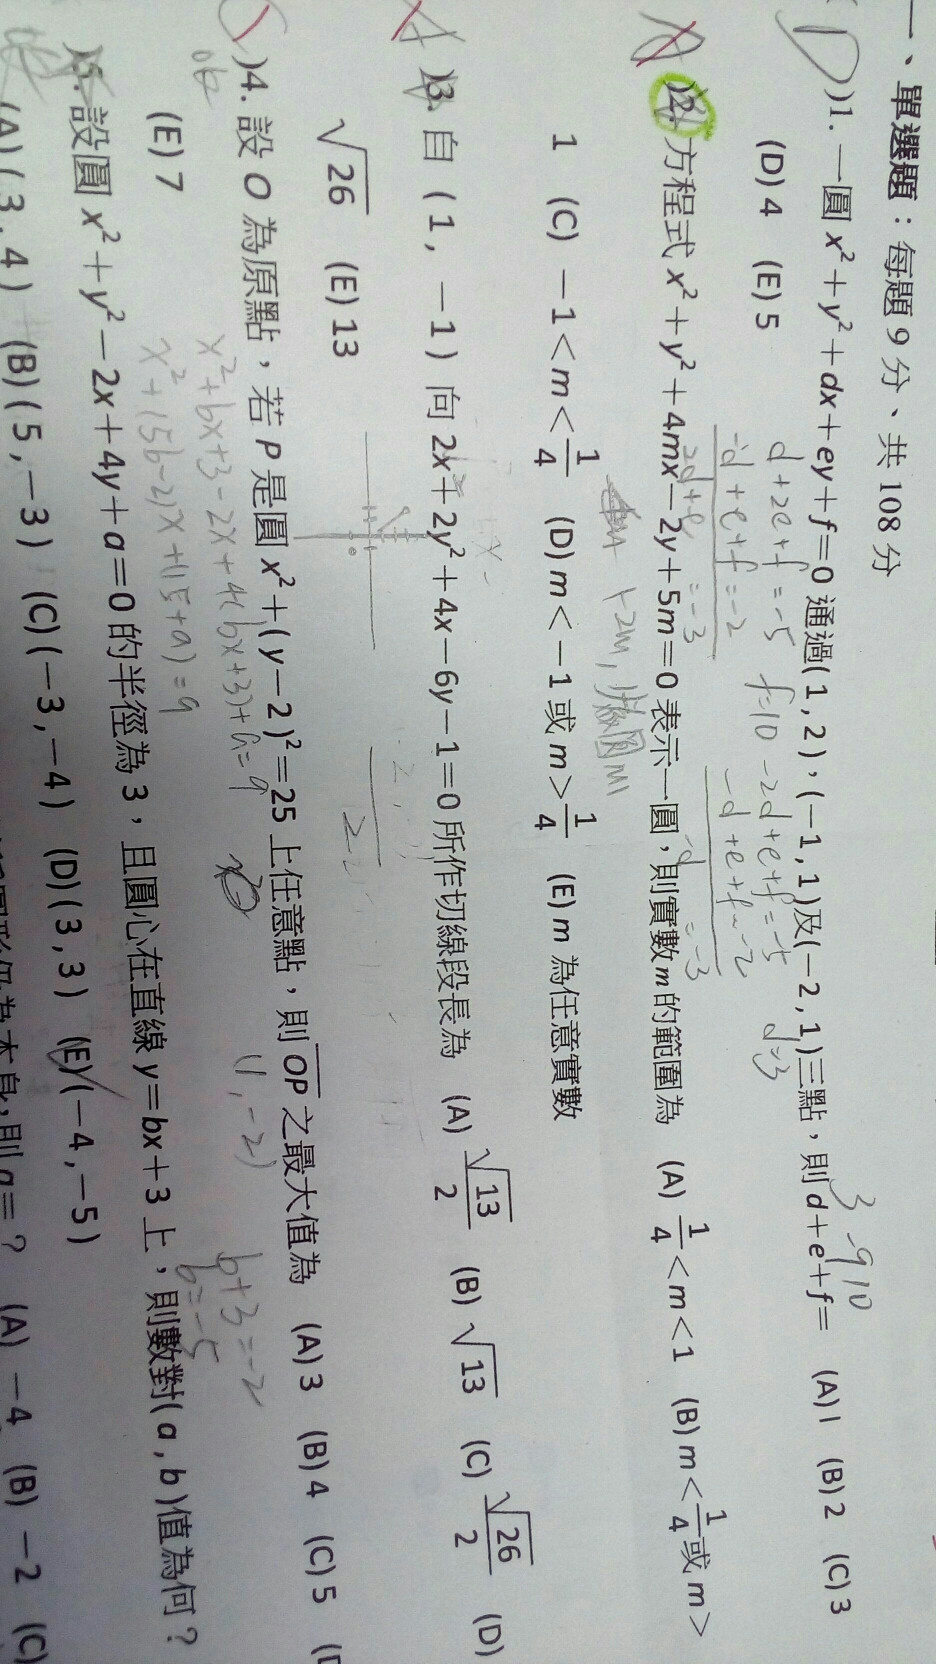 一、單選題：每題 9 分、共 108 分
)1. 一圓 x²＋y²＋dx＋ey＋f＝0 通過(1 , 2)，(－1 , 1)及(－2 , 1)三點，則 d＋e＋f＝ (A) 1 (B) 2 (C) 3
(D) 4 (E) 5
)2. 方程式 x²＋y²＋4mx－2y＋5m＝0 表示一圓，則實數 m 的範圍為 (A) 1/4＜m＜1 (B) m＜1/4 或 m＞
1 (C) －1＜m＜1/4 (D) m＜－1 或 m＞1/4 (E) m 為任意實數
)3. 自 (1 , －1) 向 2x²＋2y²＋4x－6y－1＝0 所作切線段長為 (A) √13/2 (B) √13 (C) √26/2 (D)
√26 (E) 13
)4. 設 O 為原點，若 P 是圓 x²＋(y－2)²＝25 上任意點，則 OP 之最大值為 (A) 3 (B) 4 (C) 5
(E) 7
)5. 設圓 x²＋y²－2x＋4y＋a＝0 的半徑為 3，且圓心在直線 y＝bx＋3 上，則數對(a , b)值為何？
(A) (3 , 4) (B) (5 , －3) (C) (－3 , －4) (D) (3 , 3) (E) (－4 , －5)
則 a＝？ (A) －4 (B) －2 (C)
d+2e+f=-5
-d+e+f=-2
f=10
-2d+e+f=-5
-d+e+f=-2
d=3
3 -9 10
x²+bx+3-2x+4(bx+3)+a=9
x²+(5b-2)x+(15+a)=9
(1,-2)
b+3=-2
b=-5